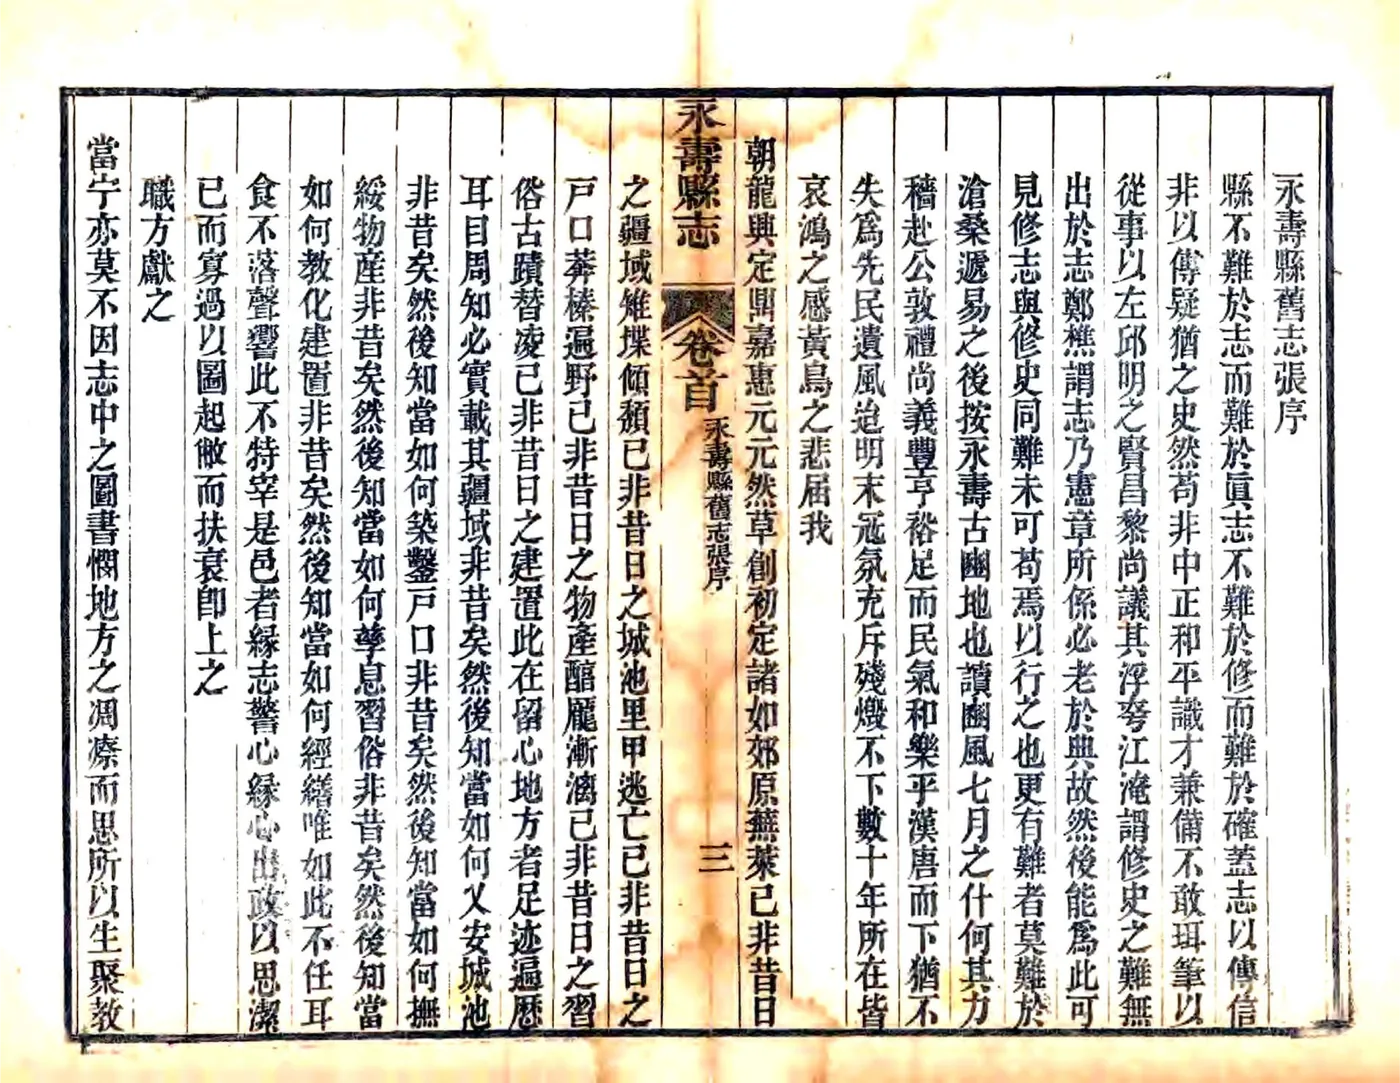 永壽縣舊志張序
縣不難於志而難於眞志不難於修而難於確蓋志以傳信
非以傳疑猶之史然苟非中正和平識才兼備不敢珥筆以
從事以左邱明之賢昌黎尚議其浮夸江淹謂修史之難無
出於志鄭樵謂志乃憲章所係必老於典故然後能爲此可
見修志與修史同難未可苟焉以行之也更有難者莫難於
滄桑遞易之後按永壽古豳地也讀豳風七月之什何其力
穡赴公敦禮尚義豐亨裕足而民氣和樂乎漢唐而下猶不
失爲先民遺風迨明末冦氛充斥殘燬不下數十年所在皆
哀鴻之感黃鳥之悲届我
朝龍興定鼎嘉惠元元然草創初定諸如郊原蕪萊已非昔日
永壽縣志
卷首
永壽縣舊志張序
三
之疆域雉堞傾頹已非昔日之城池里甲逃亡已非昔日之
戸口莽榛遍野已非昔日之物產醕厖漸漓已非昔日之習
俗古蹟替凌已非昔日之建置此在留心地方者足迹遍歷
耳目周知必實載其疆域非昔矣然後知當如何乂安城池
非昔矣然後知當如何築鑿戸口非昔矣然後知當如何撫
綏物產非昔矣然後知當如何孳息習俗非昔矣然後知當
如何教化建置非昔矣然後知當如何經繕唯如此不任耳
食不落聲響此不特宰是邑者緣志警心緣心出政以思潔
已而寡過以圖起敝而扶衰卽上之
職方獻之
當宁亦莫不因志中之圖書憫地方之凋瘵而思所以生聚教